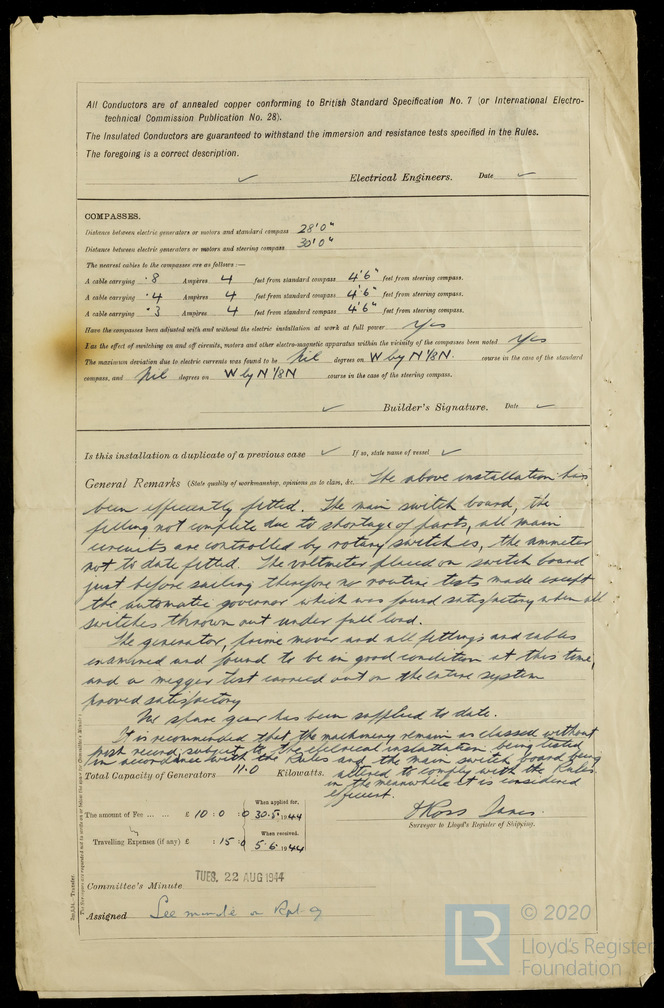 All Conductors are of annealed copper conforming to British Standard Specification No. 7 (or International Electro-
technical Commission Publication No. 28).
The Insulated Conductors are guaranteed to withstand the immersion and resistance tests specified in the Rules.
The foregoing is a correct description.
✓ Electrical Engineers. Date ✓
COMPASSES.
Distance between electric generators or motors and standard compass 28'0"
Distance between electric generators or motors and steering compass 30'0"
The nearest cables to the compasses are as follows:—
A cable carrying ·8 Ampères 4 feet from standard compass 4'6" feet from steering compass.
A cable carrying ·4 Ampères 4 feet from standard compass 4'6" feet from steering compass.
A cable carrying ·3 Ampères 4 feet from standard compass 4'6" feet from steering compass.
Have the compasses been adjusted with and without the electric installation at work at full power Yes
Has the effect of switching on and off circuits, motors and other electro-magnetic apparatus within the vicinity of the compasses been noted Yes
The maximum deviation due to electric currents was found to be Nil degrees on W by N 1/8 N. course in the case of the standard
compass, and Nil degrees on W by N 1/8 N course in the case of the steering compass.
✓ Builder's Signature. Date ✓
Is this installation a duplicate of a previous case ✓ If so, state name of vessel ✓
General Remarks (State quality of workmanship, opinions as to class, &c. The above installation has
been efficiently fitted. The main switch board, the
filling not complete due to shortage of parts, all main
circuits are controlled by rotary switches, the ammeter
not to date fitted. The voltmeter placed on switch board
just before sailing therefore no routine tests made except
the automatic governor which was found satisfactory when all
switches thrown out under full load.
The generator, prime mover and all fittings and cables
examined and found to be in good condition at this time,
and a megger test carried out on the entire system
proved satisfactory
No spare gear has been supplied to date.
It is recommended that the machinery remain as classed without
fresh record, subject to the electrical installation being tested
in accordance with the Rules and the main switch board being
altered to comply with the Rules
Total Capacity of Generators 11.0 Kilowatts.
in the meanwhile it is considered
efficient.
The amount of Fee ... ... £ 10 : 0 : 0 When applied for, 30.5.1944
Travelling Expenses (if any) £ : 15 : 0 When received, 5.6.1944
Surveyor to Lloyd's Register of Shipping.
TUES. 22 AUG 1944
Committee's Minute
Assigned See minute on Rpt. 9
© 2020
LR
Lloyd's Register
Foundation